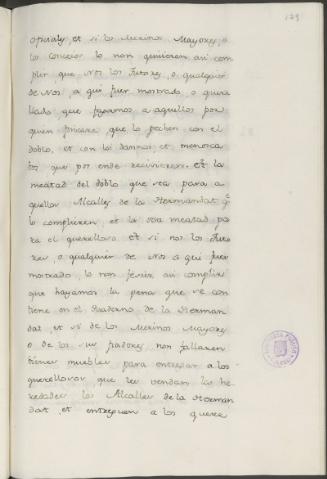 129
oficiales et si los Merinos Mayores, o
los concejos lo non quisieren asi com
plir que Nos los Tutores, o qualquier
de Nos, a qui fuer mostrado, o quere
llado que fagamos a aquellos por
quien fincare, que lo pechen con el
doblo, et con los dannos, et menosca
bos que por ende recivieren. Et la
meatad del doblo que sea para a
quellos Alcalles de la Hermandat que
lo complieren, et la otra meatad pa
ra el querelloso. Et si nos los Tuto
res, o qualquier de Nos a qui fuer
mostrado, lo non ficier asi complir
que hayamos la pena que se con
tiene en el Quaderno de la Herman
dat, et si de los Merinos Mayores
o de los sus fiadores non fallaren
bienes muebles, para entregar a los
querellosos, que les vendan los he
redades los Alcalles de la Herman
dat, et entreguen a los quere